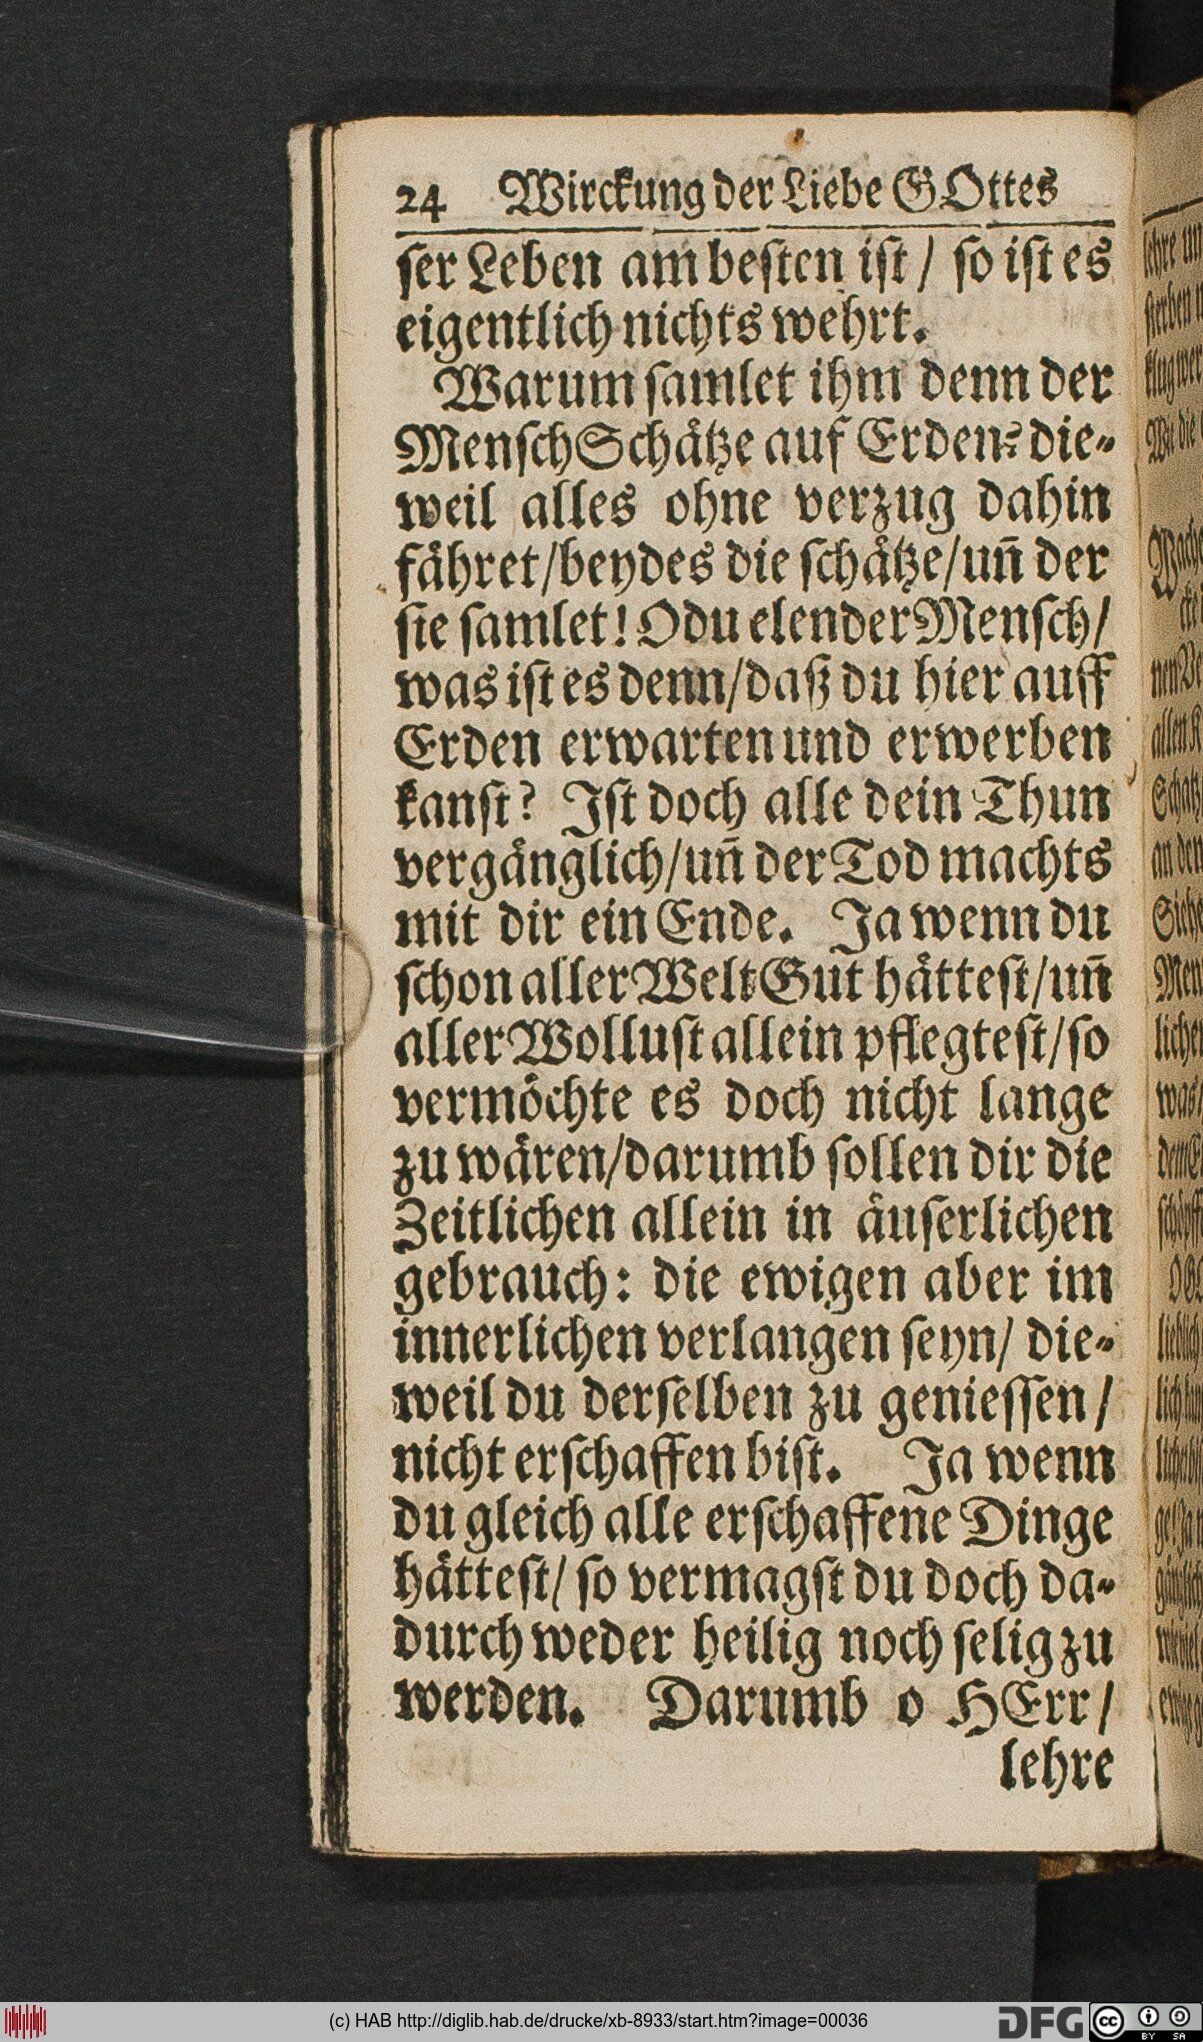 24 Wirckung der Liebe GOttes
ser Leben am besten ist / so ist es
eigentlich nichts wehrt.
Warum samlet ihm denn der
Mensch Schaͤtze auf Erden? die-
weil alles ohne verzug dahin
faͤhret/beydes die schaͤtze/uñ der
sie samlet! O du elender Mensch/
was ist es denn/daß du hier auff
Erden erwarten und erwerben
kanst? Ist doch alle dein Thun
vergaͤnglich/uñ der Tod machts
mit dir ein Ende. Ja wenn du
schon aller Welt Gut haͤttest/uñ
aller Wollust allein pflegtest/so
vermoͤchte es doch nicht lange
zu waͤren/darumb sollen dir die
Zeitlichen allein in aͤuserlichen
gebrauch: die ewigen aber im
innerlichen verlangen seyn/ die-
weil du derselben zu geniessen/
nicht erschaffen bist. Ja wenn
du gleich alle erschaffene Dinge
haͤttest/ so vermagst du doch da-
durch weder heilig noch selig zu
werden. Darumb o HErr/
lehre
(c) HAB http://diglib.hab.de/drucke/xb-8933/start.htm?image=00036
DFG
cc BY SA